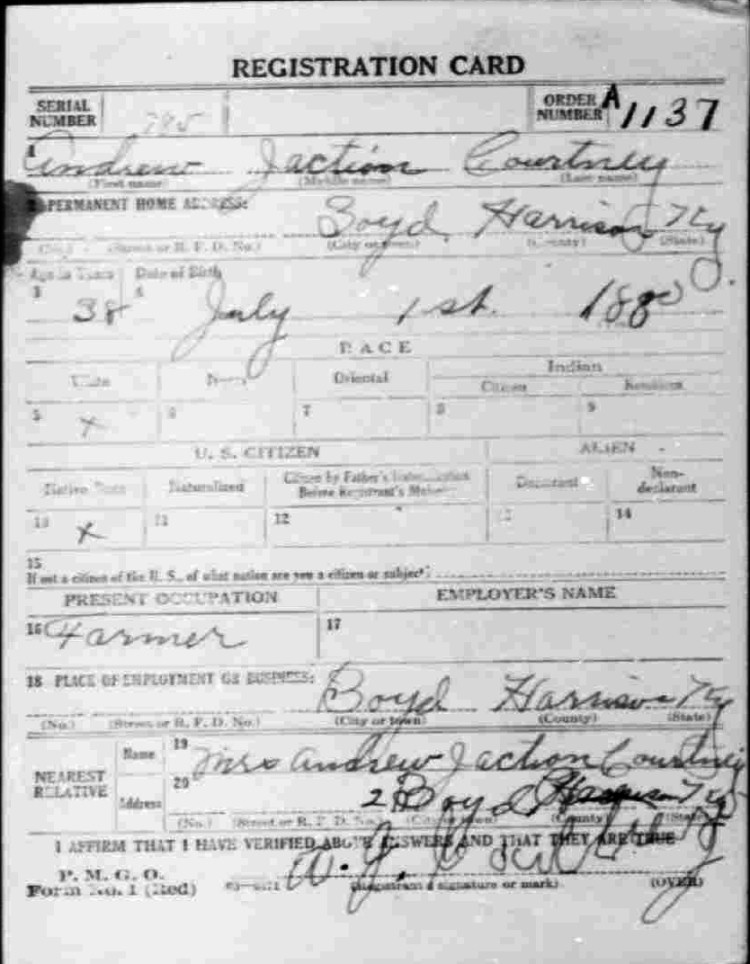 REGISTRATION CARD
SERIAL NUMBER 785 ORDER NUMBER A 1137
1 Andrew Jaction Courtney
(First name) (Middle name) (Last name)
2 PERMANENT HOME ADDRESS: Boyd Harrison Ky
(No.) (Street or R. F. D. No.) (City or town) (County) (State)
Age in Years Date of Birth
3 38 4 July 1st. 1880
RACE
White Negro Oriental Indian
Citizen
5 x 6 7 8 9
U. S. CITIZEN ALIEN
Native Born Naturalized Citizen by Father's Naturalization Before Registrant's Majority Declarant Non-declarant
10 x 11 12 13 14
15
If not a citizen of the U. S., of what nation are you a citizen or subject?
PRESENT OCCUPATION EMPLOYER'S NAME
16 Farmer 17
18 PLACE OF EMPLOYMENT OR BUSINESS: Boyd Harrison Ky
(No.) (Street or R. F. D. No.) (City or town) (County) (State)
NEAREST RELATIVE Name 19 Mrs Andrew Jaction Courtney
Address 20 Boyd Harrison Ky
(No.) (Street or R. F. D. No.) (City or town) (County) (State)
I AFFIRM THAT I HAVE VERIFIED ABOVE ANSWERS AND THAT THEY ARE TRUE
P. M. G. O.
Form No. 1 (Red) (Registrant's signature or mark) (OVER)